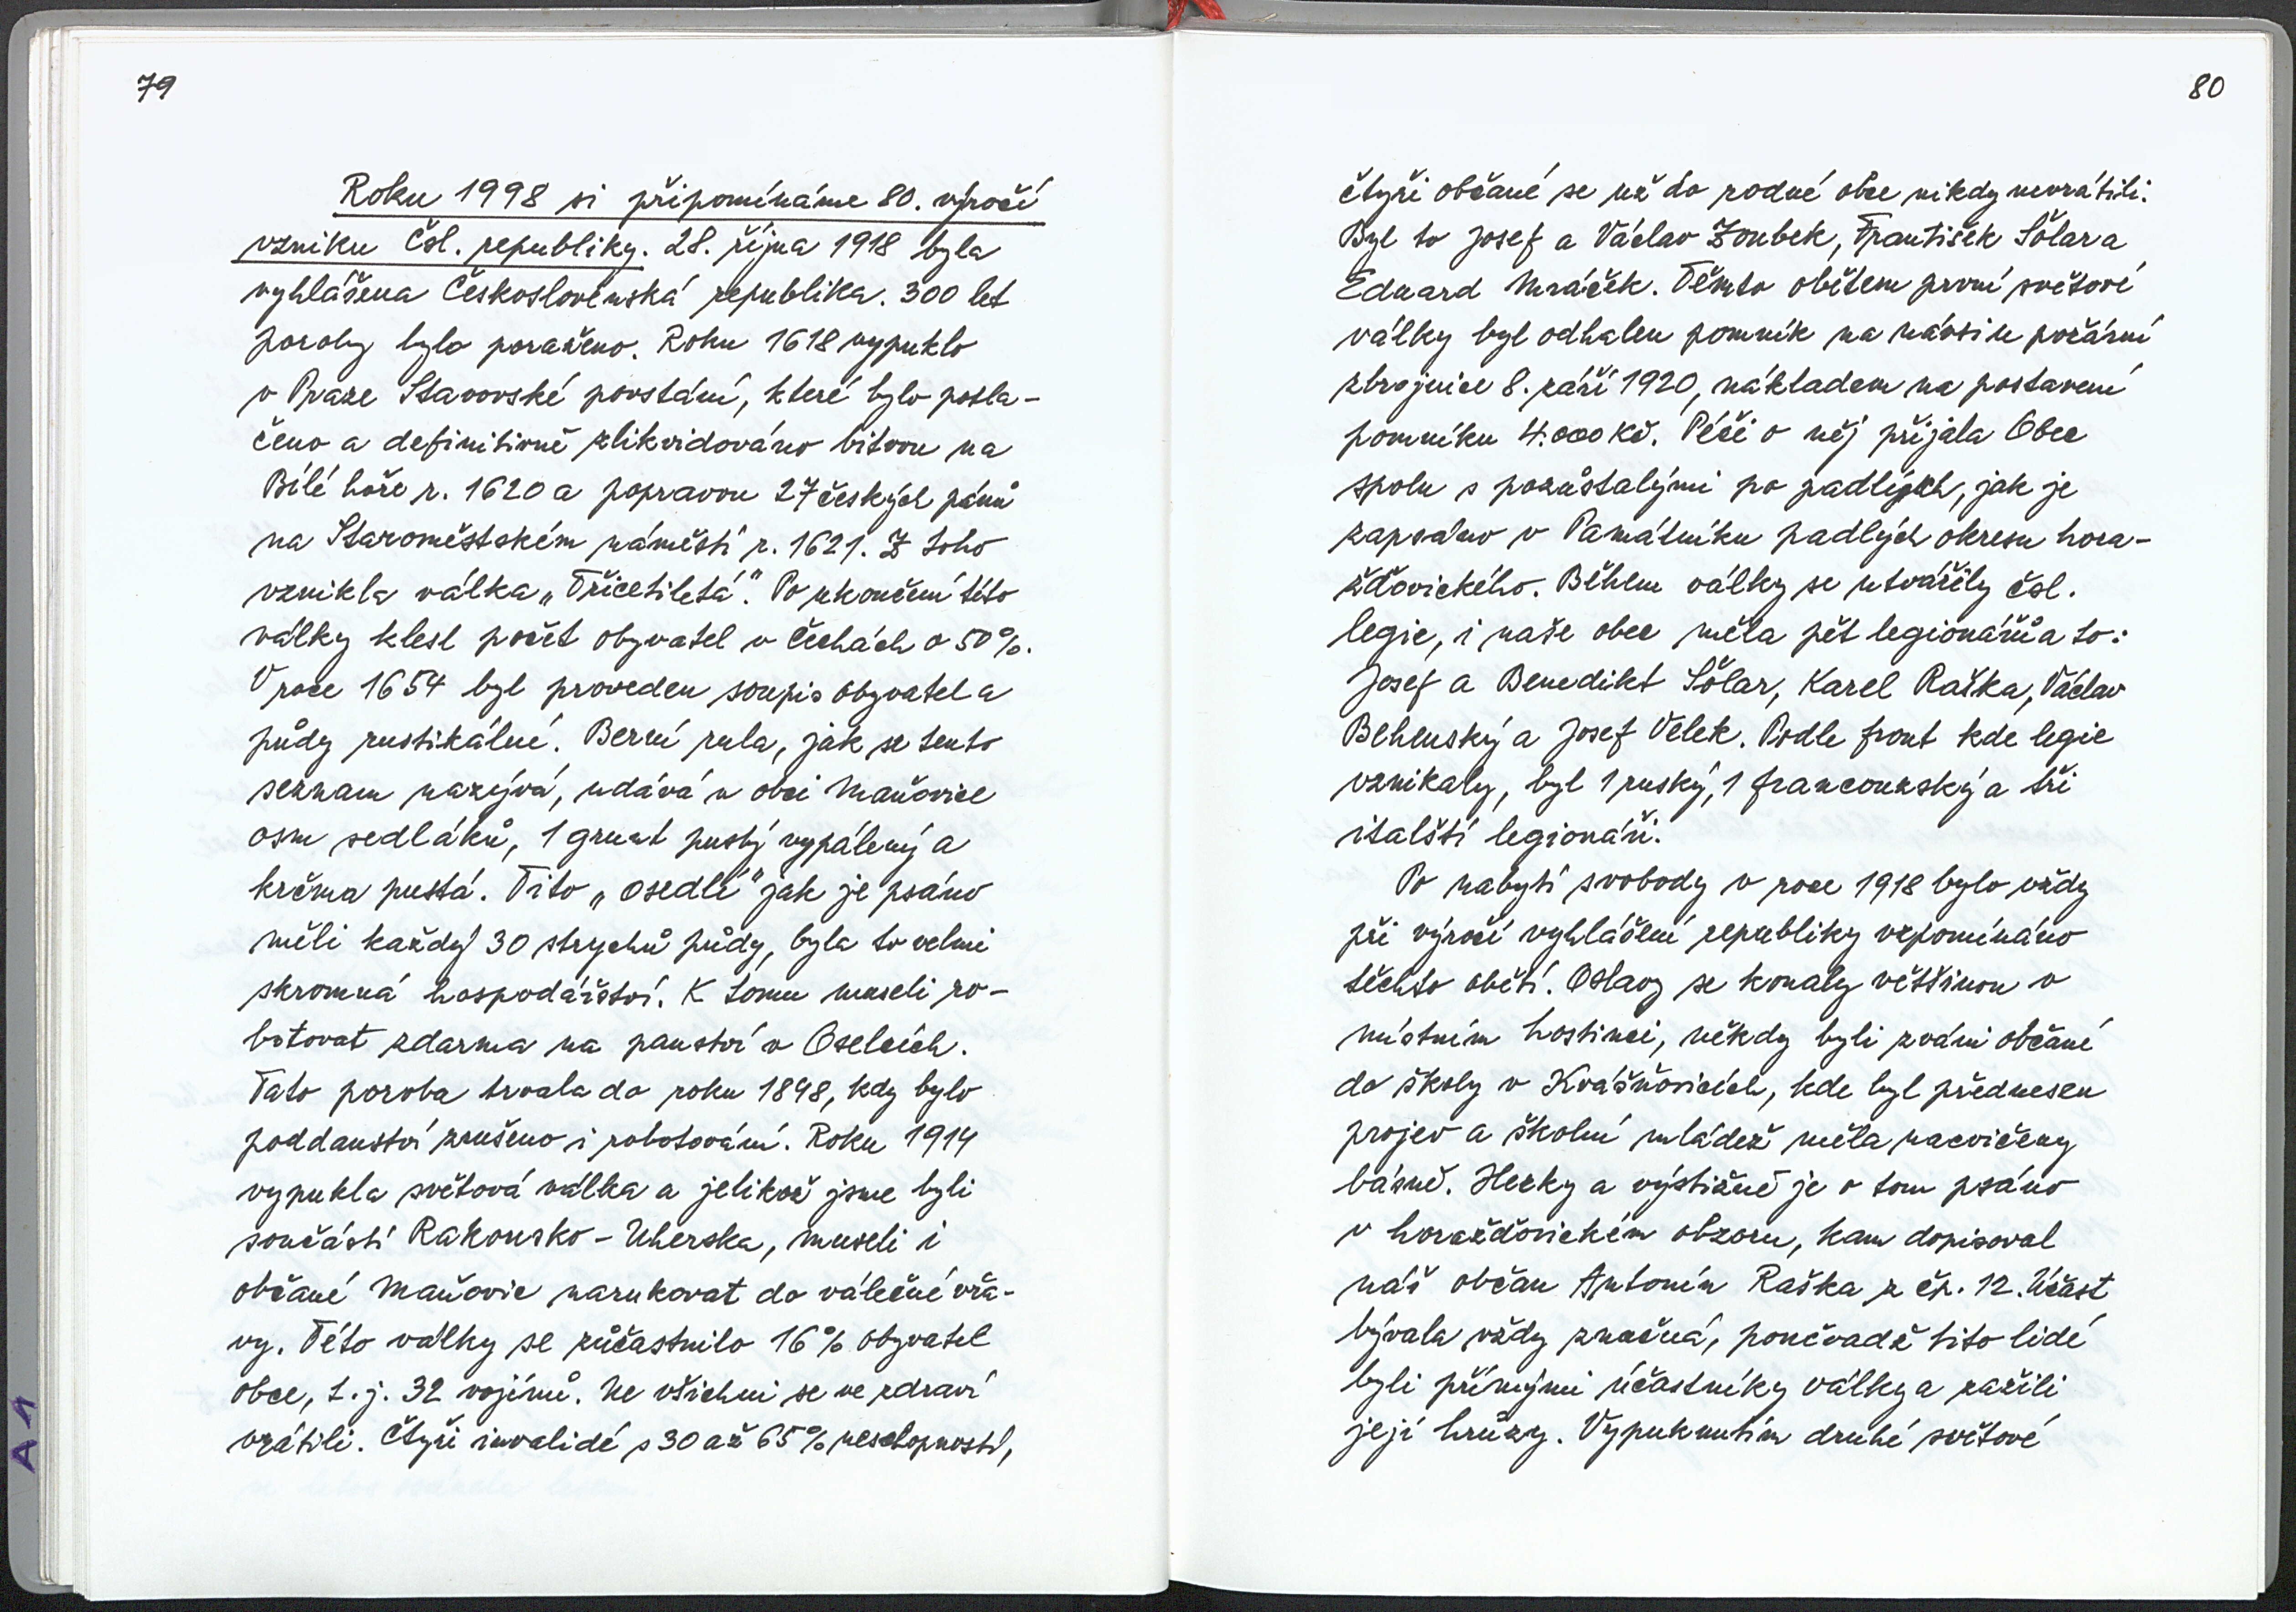 79
Roku 1998 si připomínáme 80. výročí
vzniku Čsl. republiky. 28. října 1918 byla
vyhlášena Československá republika. 300 let
poroby bylo poraženo. Roku 1618 vypuklo
v Praze Stavovské povstání, které bylo potla-
čeno a definitivně zlikvidováno bitvou na
Bílé hoře r. 1620 a popravou 27 českých pánů
na Staroměstském náměstí r. 1621. Z toho
vznikla válka „Třicetiletá". Po ukončení této
války klesl počet obyvatel v Čechách o 50%.
V roce 1654 byl proveden soupis obyvatel a
půdy rustikální. Berní rula, jak se tento
seznam nazývá, udává u obci Maňovice
osm sedláků, 1 grunt pustý vypálený a
krčma pustá. Tito „osedlí" jak je psáno
měli každý 30 strychů půdy, byla to velmi
skromná hospodářství. K tomu museli ro-
botovat zdarma na panství v Oselcích.
Tato poroba trvala do roku 1898, kdy bylo
poddanství zrušeno i robotování. Roku 1914
vypukla světová válka a jelikož jsme byli
součástí Rakousko-Uherska, museli i
občané Maňovic narukovat do válečné vřa-
vy. Této války se zůčastnilo 16% obyvatel
obce, t.j. 32 vojínů. Ne všichni se ve zdraví
vrátili. Čtyři invalidé s 30 až 65% neschopností,
A1
80
čtyři občané se už do rodné obce nikdy nevrátili.
Byl to Josef a Václav Zoubek, František Šolar a
Eduard Mráček. Těmto obětem první světové
války byl odhalen pomník na návsi u požární
zbrojnice 8. září 1920, nákladem na postavení
pomníku 4.000 Kč. Péči o něj přijala Obec
spolu s pozůstalými po padlých, jak je
zapsáno v Památníku padlých okresu hora-
žďovického. Během války se utvářily čsl.
legie, i naše obec měla pět legionářů a to:
Josef a Benedikt Šolar, Karel Raška, Václav
Behenský a Josef Velek. Podle front kde legie
vznikaly, byl 1 ruský, 1 francouzský a tři
italští legionáři.
Po nabytí svobody v roce 1918 bylo vždy
při výročí vyhlášení republiky vzpomínáno
těchto obětí. Oslavy se konaly většinou v
místním hostinci, někdy byli zváni občané
do školy v Kvášňovicích, kde byl přednesen
projev a školní mládež měla nacvičeny
básně. Hezky a výstižně je o tom psáno
v horažďovickém obzoru, kam dopisoval
náš občan Antonín Raška z čp. 12. Účast
bývala vždy značná, poněvadž tito lidé
byli přímými účastníky války a zažili
její hrůzy. Vypuknutím druhé světové